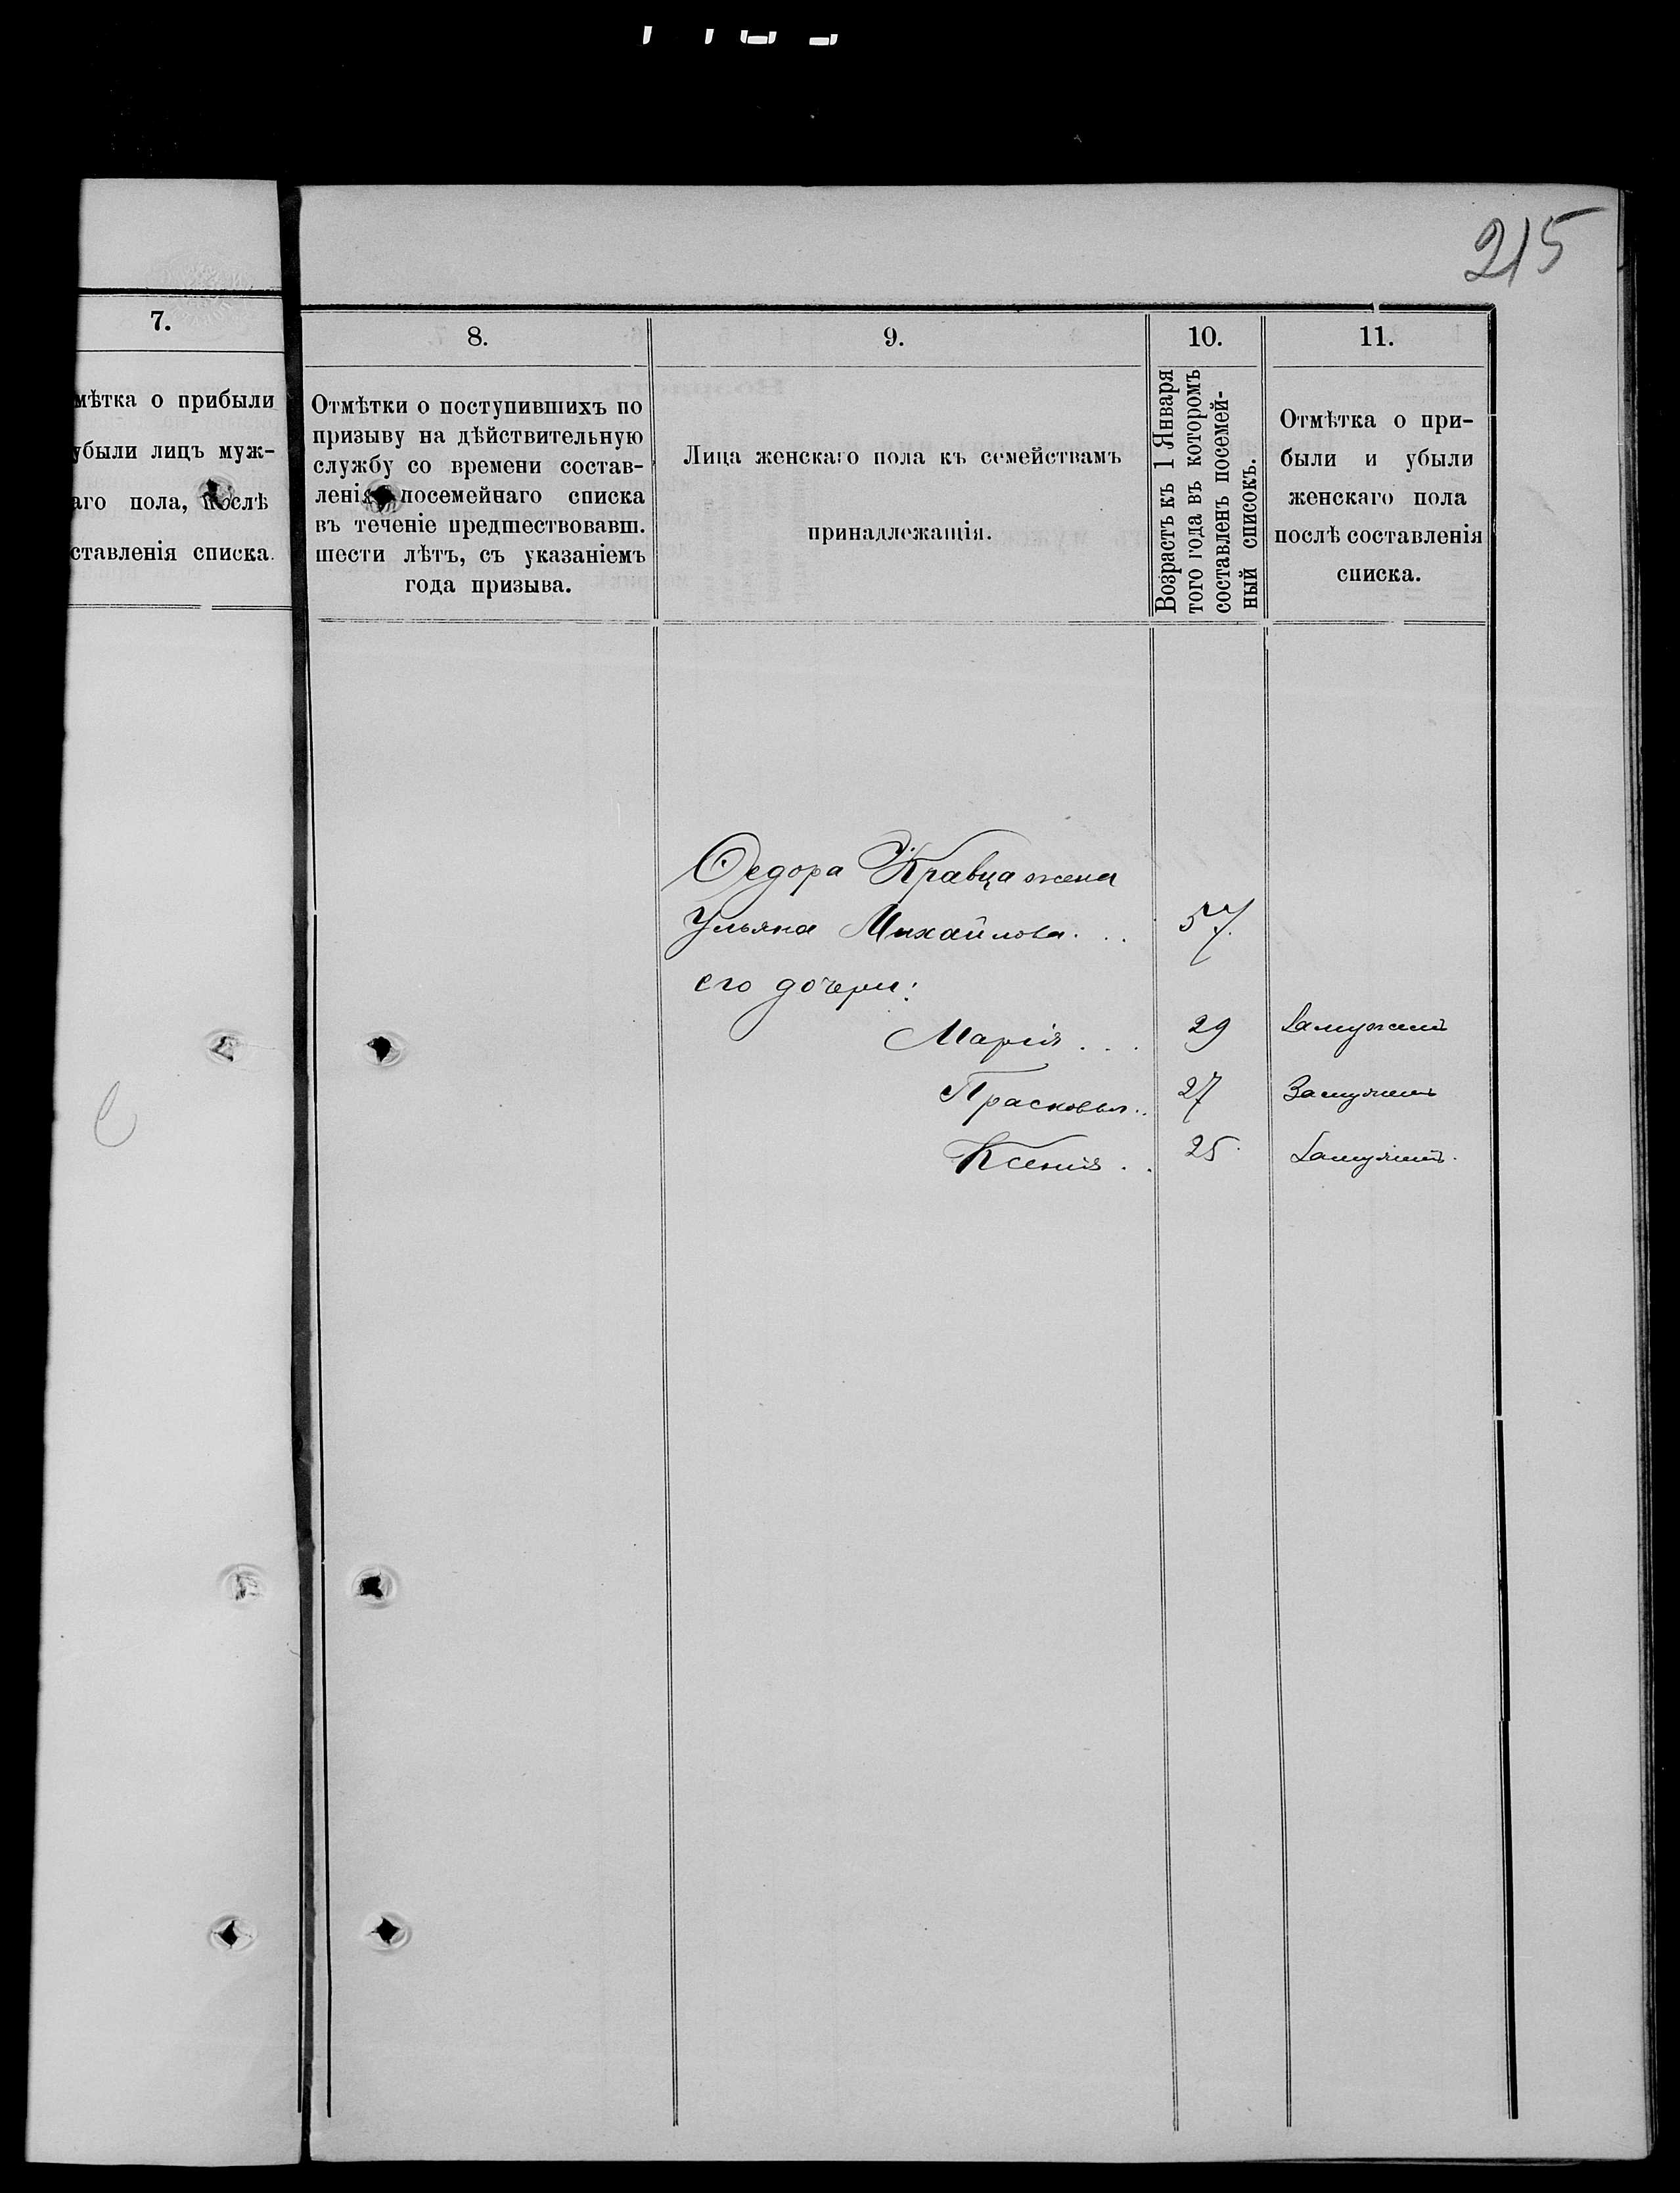 215
7.
мѣтка о прибыли
убыли лицъ муж-
аго пола, послѣ
ставленія списка.
8.
Отмѣтки о поступившихъ по
призыву на дѣйствительную
службу со времени состав-
ленія посемейнаго списка
въ теченіе предшествовавш.
шести лѣтъ, съ указаніемъ
года призыва.
9.
Лица женскаго пола къ семействамъ
принадлежащія.
10.
Возрастъ къ 1 Января
того года въ которомъ
составленъ посемей-
ный списокъ.
11.
Отмѣтка о при-
были и убыли
женскаго пола
послѣ составленія
списка.
Ѳедора Кравца жена
Ульяна Михайлова . . . 57.
его дочери:
Марія . . . 29 Замужемъ
Прасковья .. 27 Замужемъ
Ксенія . . 25. Замужемъ.